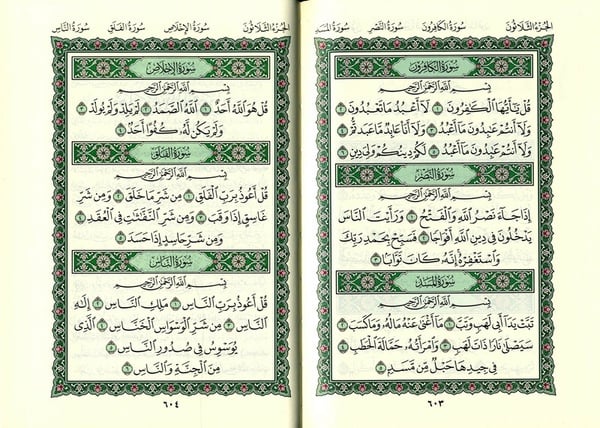 الجزء الثلاثون سورة الكافرون سورة النصر سورة المسد
سورة الكافرون
بسم الله الرحمن الرحيم
قُلْ يَٰٓأَيُّهَا ٱلْكَٰفِرُونَ ١ لَآ أَعْبُدُ مَا تَعْبُدُونَ ٢
وَلَآ أَنتُمْ عَٰبِدُونَ مَآ أَعْبُدُ ٣ وَلَآ أَنَا۠ عَابِدٌ مَّا عَبَدتُّمْ ٤
وَلَآ أَنتُمْ عَٰبِدُونَ مَآ أَعْبُدُ ٥ لَكُمْ دِينُكُمْ وَلِىَ دِينِ ٦
سورة النصر
بسم الله الرحمن الرحيم
إِذَا جَآءَ نَصْرُ ٱللَّهِ وَٱلْفَتْحُ ١ وَرَأَيْتَ ٱلنَّاسَ
يَدْخُلُونَ فِى دِينِ ٱللَّهِ أَفْوَاجًا ٢ فَسَبِّحْ بِحَمْدِ رَبِّكَ
وَٱسْتَغْفِرْهُ إِنَّهُۥ كَانَ تَوَّابًۢا ٣
سورة المسد
بسم الله الرحمن الرحيم
تَبَّتْ يَدَآ أَبِى لَهَبٍ وَتَبَّ ١ مَآ أَغْنَىٰ عَنْهُ مَالُهُۥ وَمَا كَسَبَ ٢
سَيَصْلَىٰ نَارًا ذَاتَ لَهَبٍ ٣ وَٱمْرَأَتُهُۥ حَمَّالَةَ ٱلْحَطَبِ ٤
فِى جِيدِهَا حَبْلٌ مِّن مَّسَدٍۭ ٥
٦٠٣
الجزء الثلاثون سورة الإخلاص سورة الفلق سورة الناس
سورة الإخلاص
بسم الله الرحمن الرحيم
قُلْ هُوَ ٱللَّهُ أَحَدٌ ١ ٱللَّهُ ٱلصَّمَدُ ٢ لَمْ يَلِدْ وَلَمْ يُولَدْ ٣
وَلَمْ يَكُن لَّهُۥ كُفُوًا أَحَدٌۢ ٤
سورة الفلق
بسم الله الرحمن الرحيم
قُلْ أَعُوذُ بِرَبِّ ٱلْفَلَقِ ١ مِن شَرِّ مَا خَلَقَ ٢ وَمِن شَرِّ
غَاسِقٍ إِذَا وَقَبَ ٣ وَمِن شَرِّ ٱلنَّفَّٰثَٰتِ فِى ٱلْعُقَدِ ٤
وَمِن شَرِّ حَاسِدٍ إِذَا حَسَدَ ٥
سورة الناس
بسم الله الرحمن الرحيم
قُلْ أَعُوذُ بِرَبِّ ٱلنَّاسِ ١ مَلِكِ ٱلنَّاسِ ٢ إِلَٰهِ
ٱلنَّاسِ ٣ مِن شَرِّ ٱلْوَسْوَاسِ ٱلْخَنَّاسِ ٤ ٱلَّذِى
يُوَسْوِسُ فِى صُدُورِ ٱلنَّاسِ ٥
مِنَ ٱلْجِنَّةِ وَٱلنَّاسِ ٦
٦٠٤